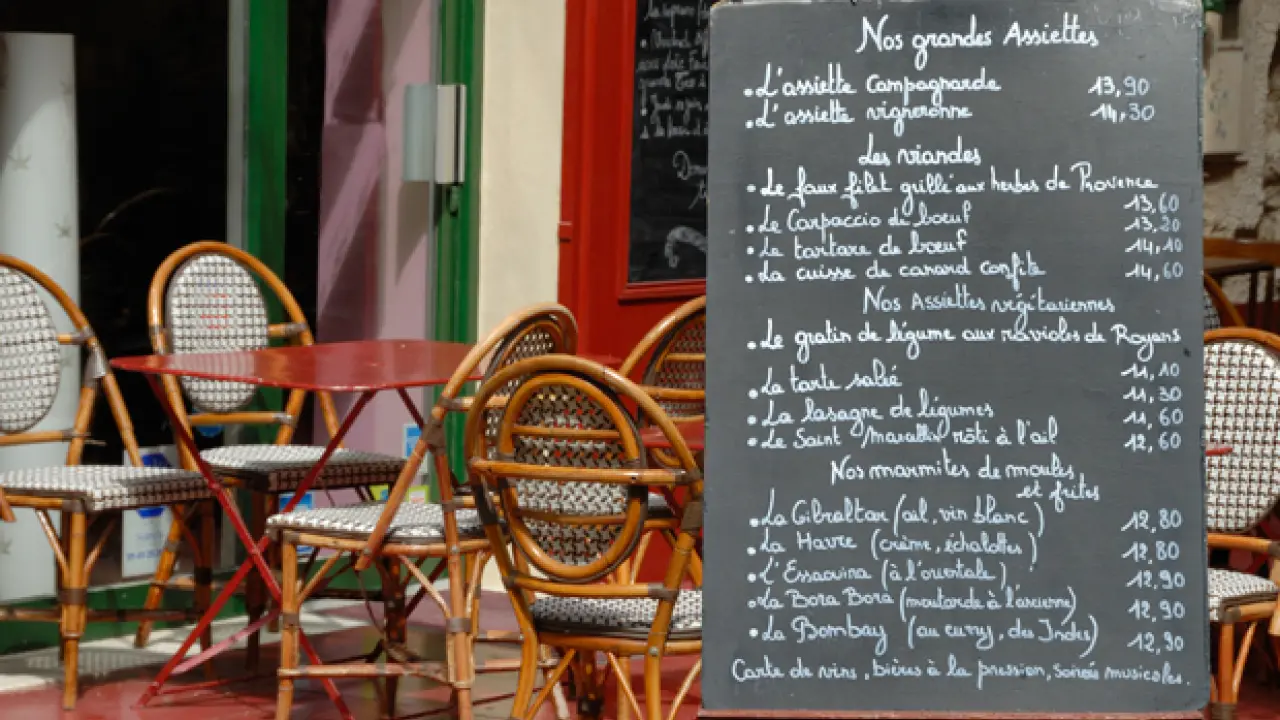 Nos grandes Assiettes
• L'assiette Campagnarde 13,90
• L'assiette vigneronne 14,30
Les viandes
• Le faux filet grillé aux herbes de Provence
13,60
• Le Carpaccio de bœuf 13,20
• Le tartare de bœuf 14,10
• La cuisse de canard confite 14,60
Nos Assiettes végétariennes
• Le gratin de légume aux ravioles de Royans
11,10
• La tarte salée 11,30
• La lasagne de légumes 11,60
• Le Saint Marcellin rôti à l'ail 12,60
Nos marmites de moules
et frites
• La Gibraltar (ail, vin blanc) 12,80
• La Havre (crème, échalottes) 12,80
• L'Essaouira (à l'orientale) 12,90
• La Bora Bora (moutarde à l'ancienne) 12,90
• La Bombay (au curry, des Indes) 12,90
Carte de vins, bières à la pression, soirées musicales.